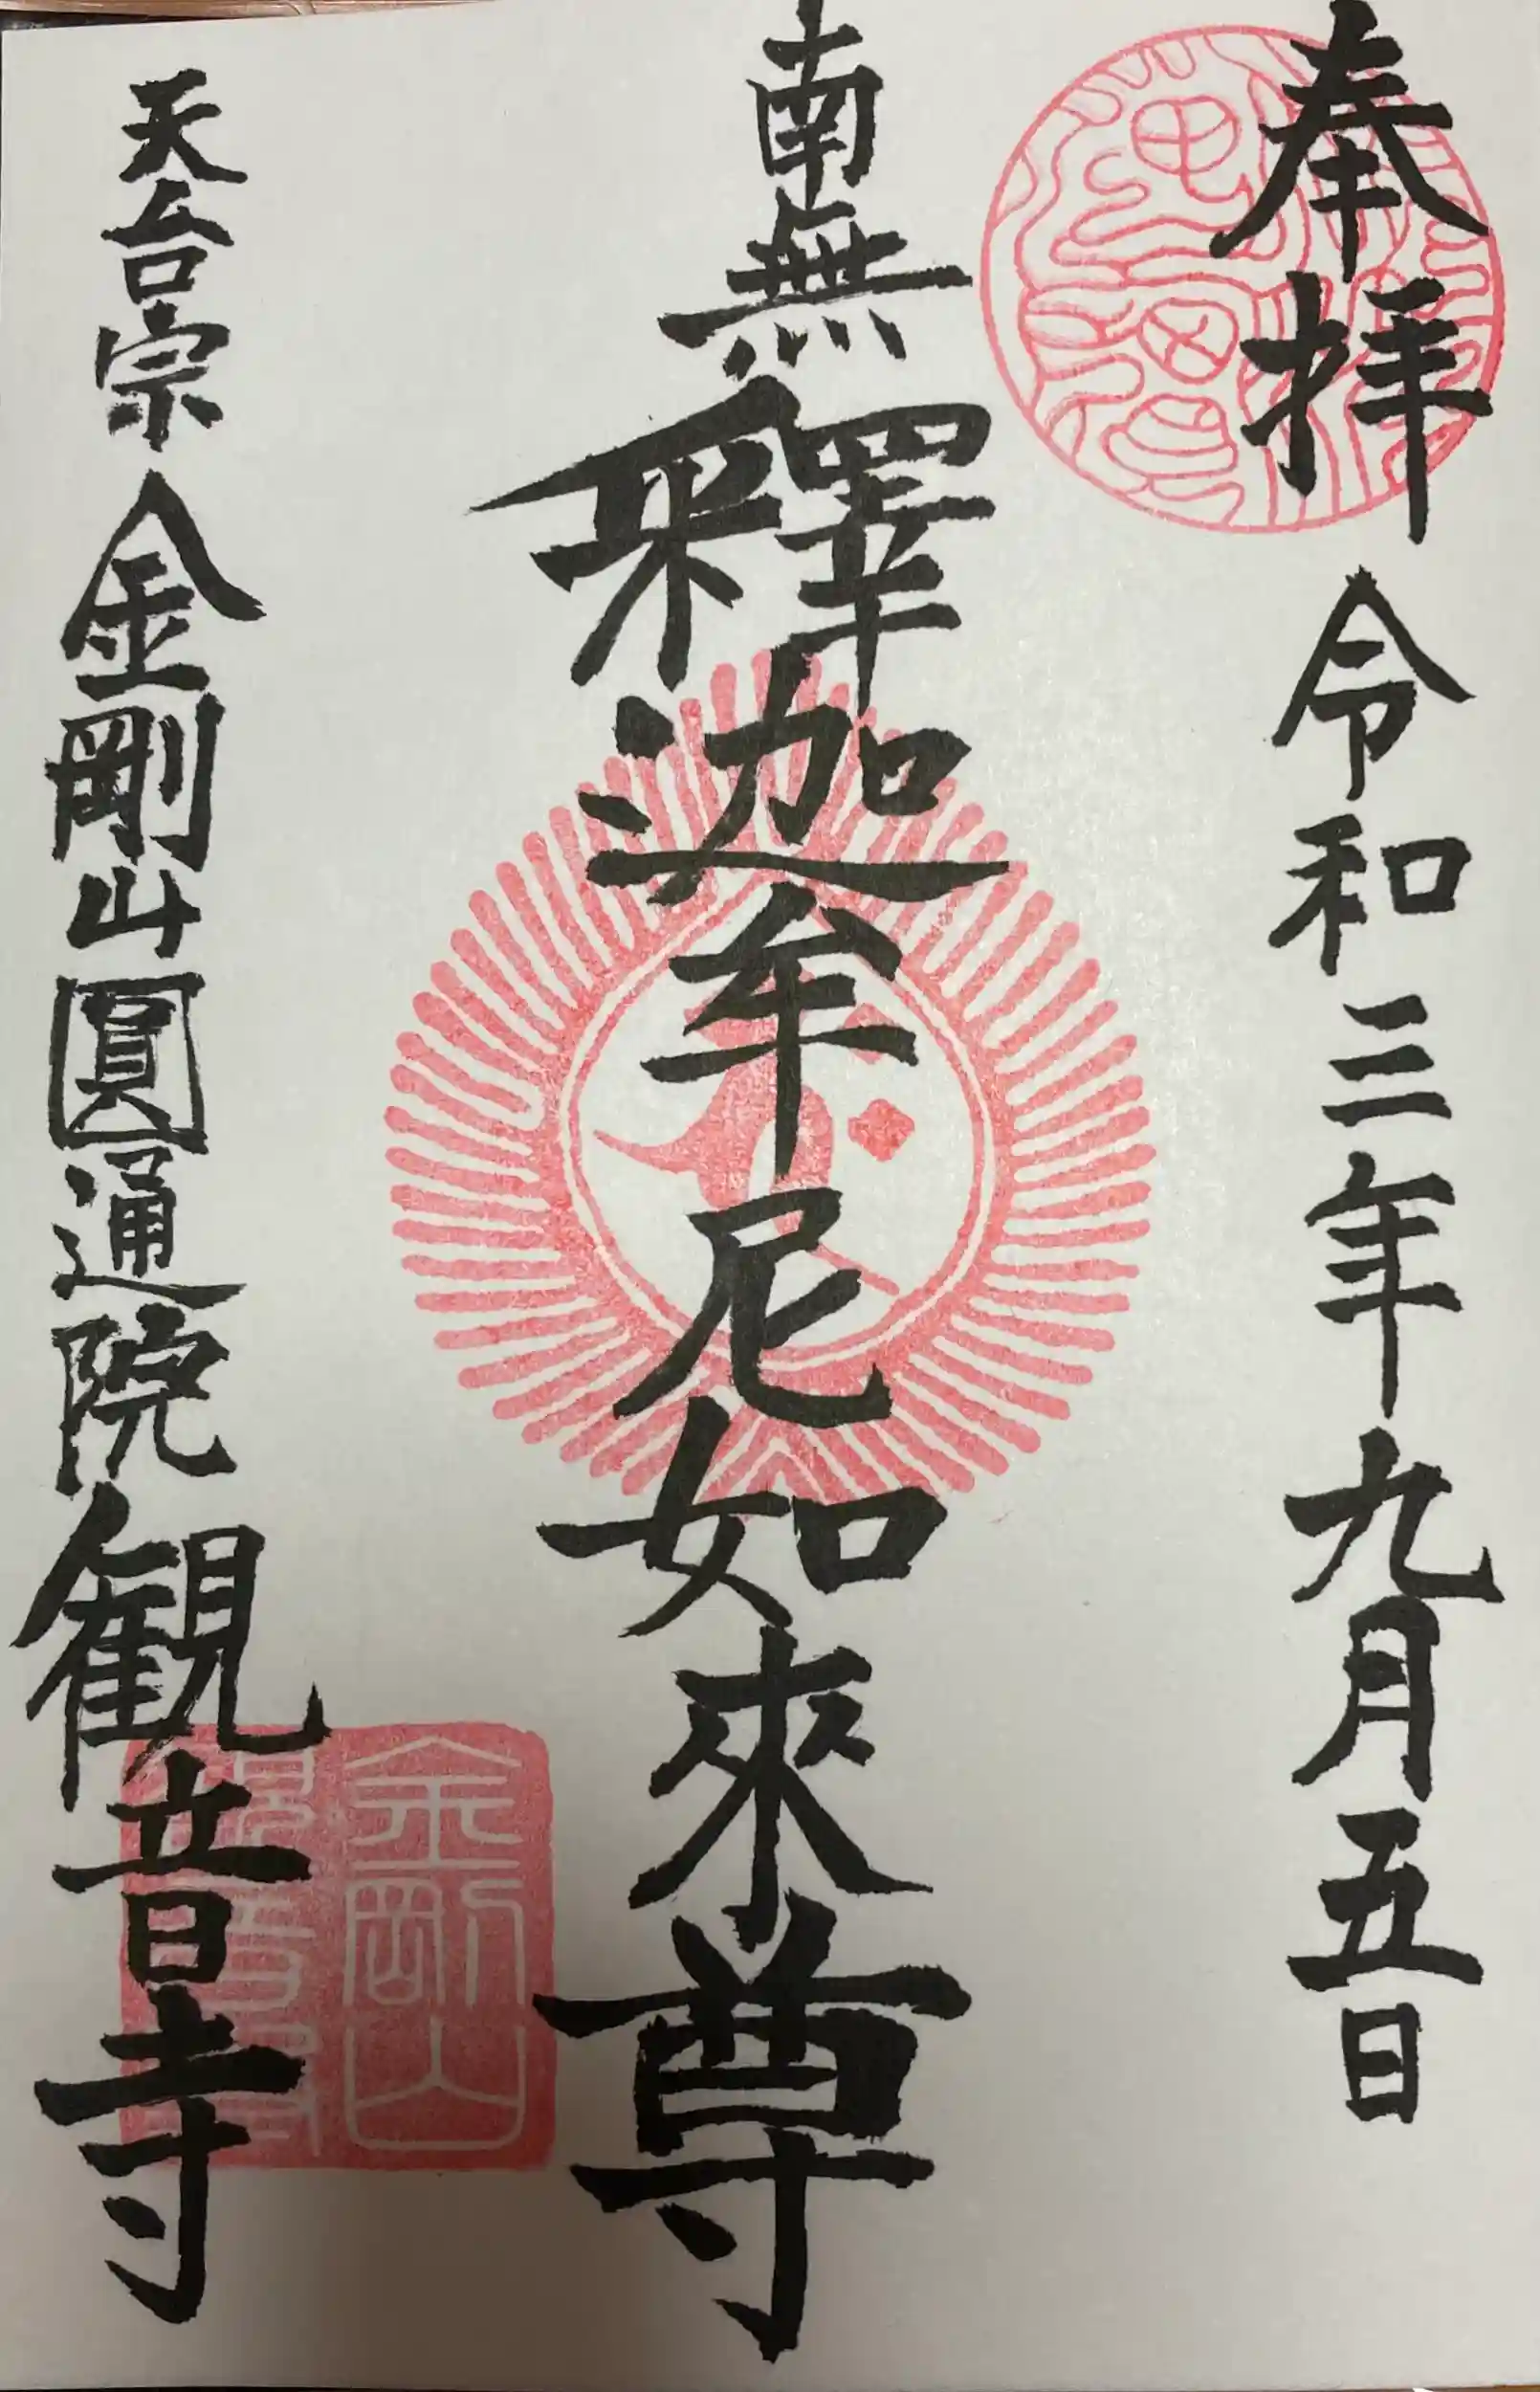 奉拝 令和三年九月五日
南無釋迦牟尼如來尊
天台宗 金剛山圓通院観音寺
金剛山